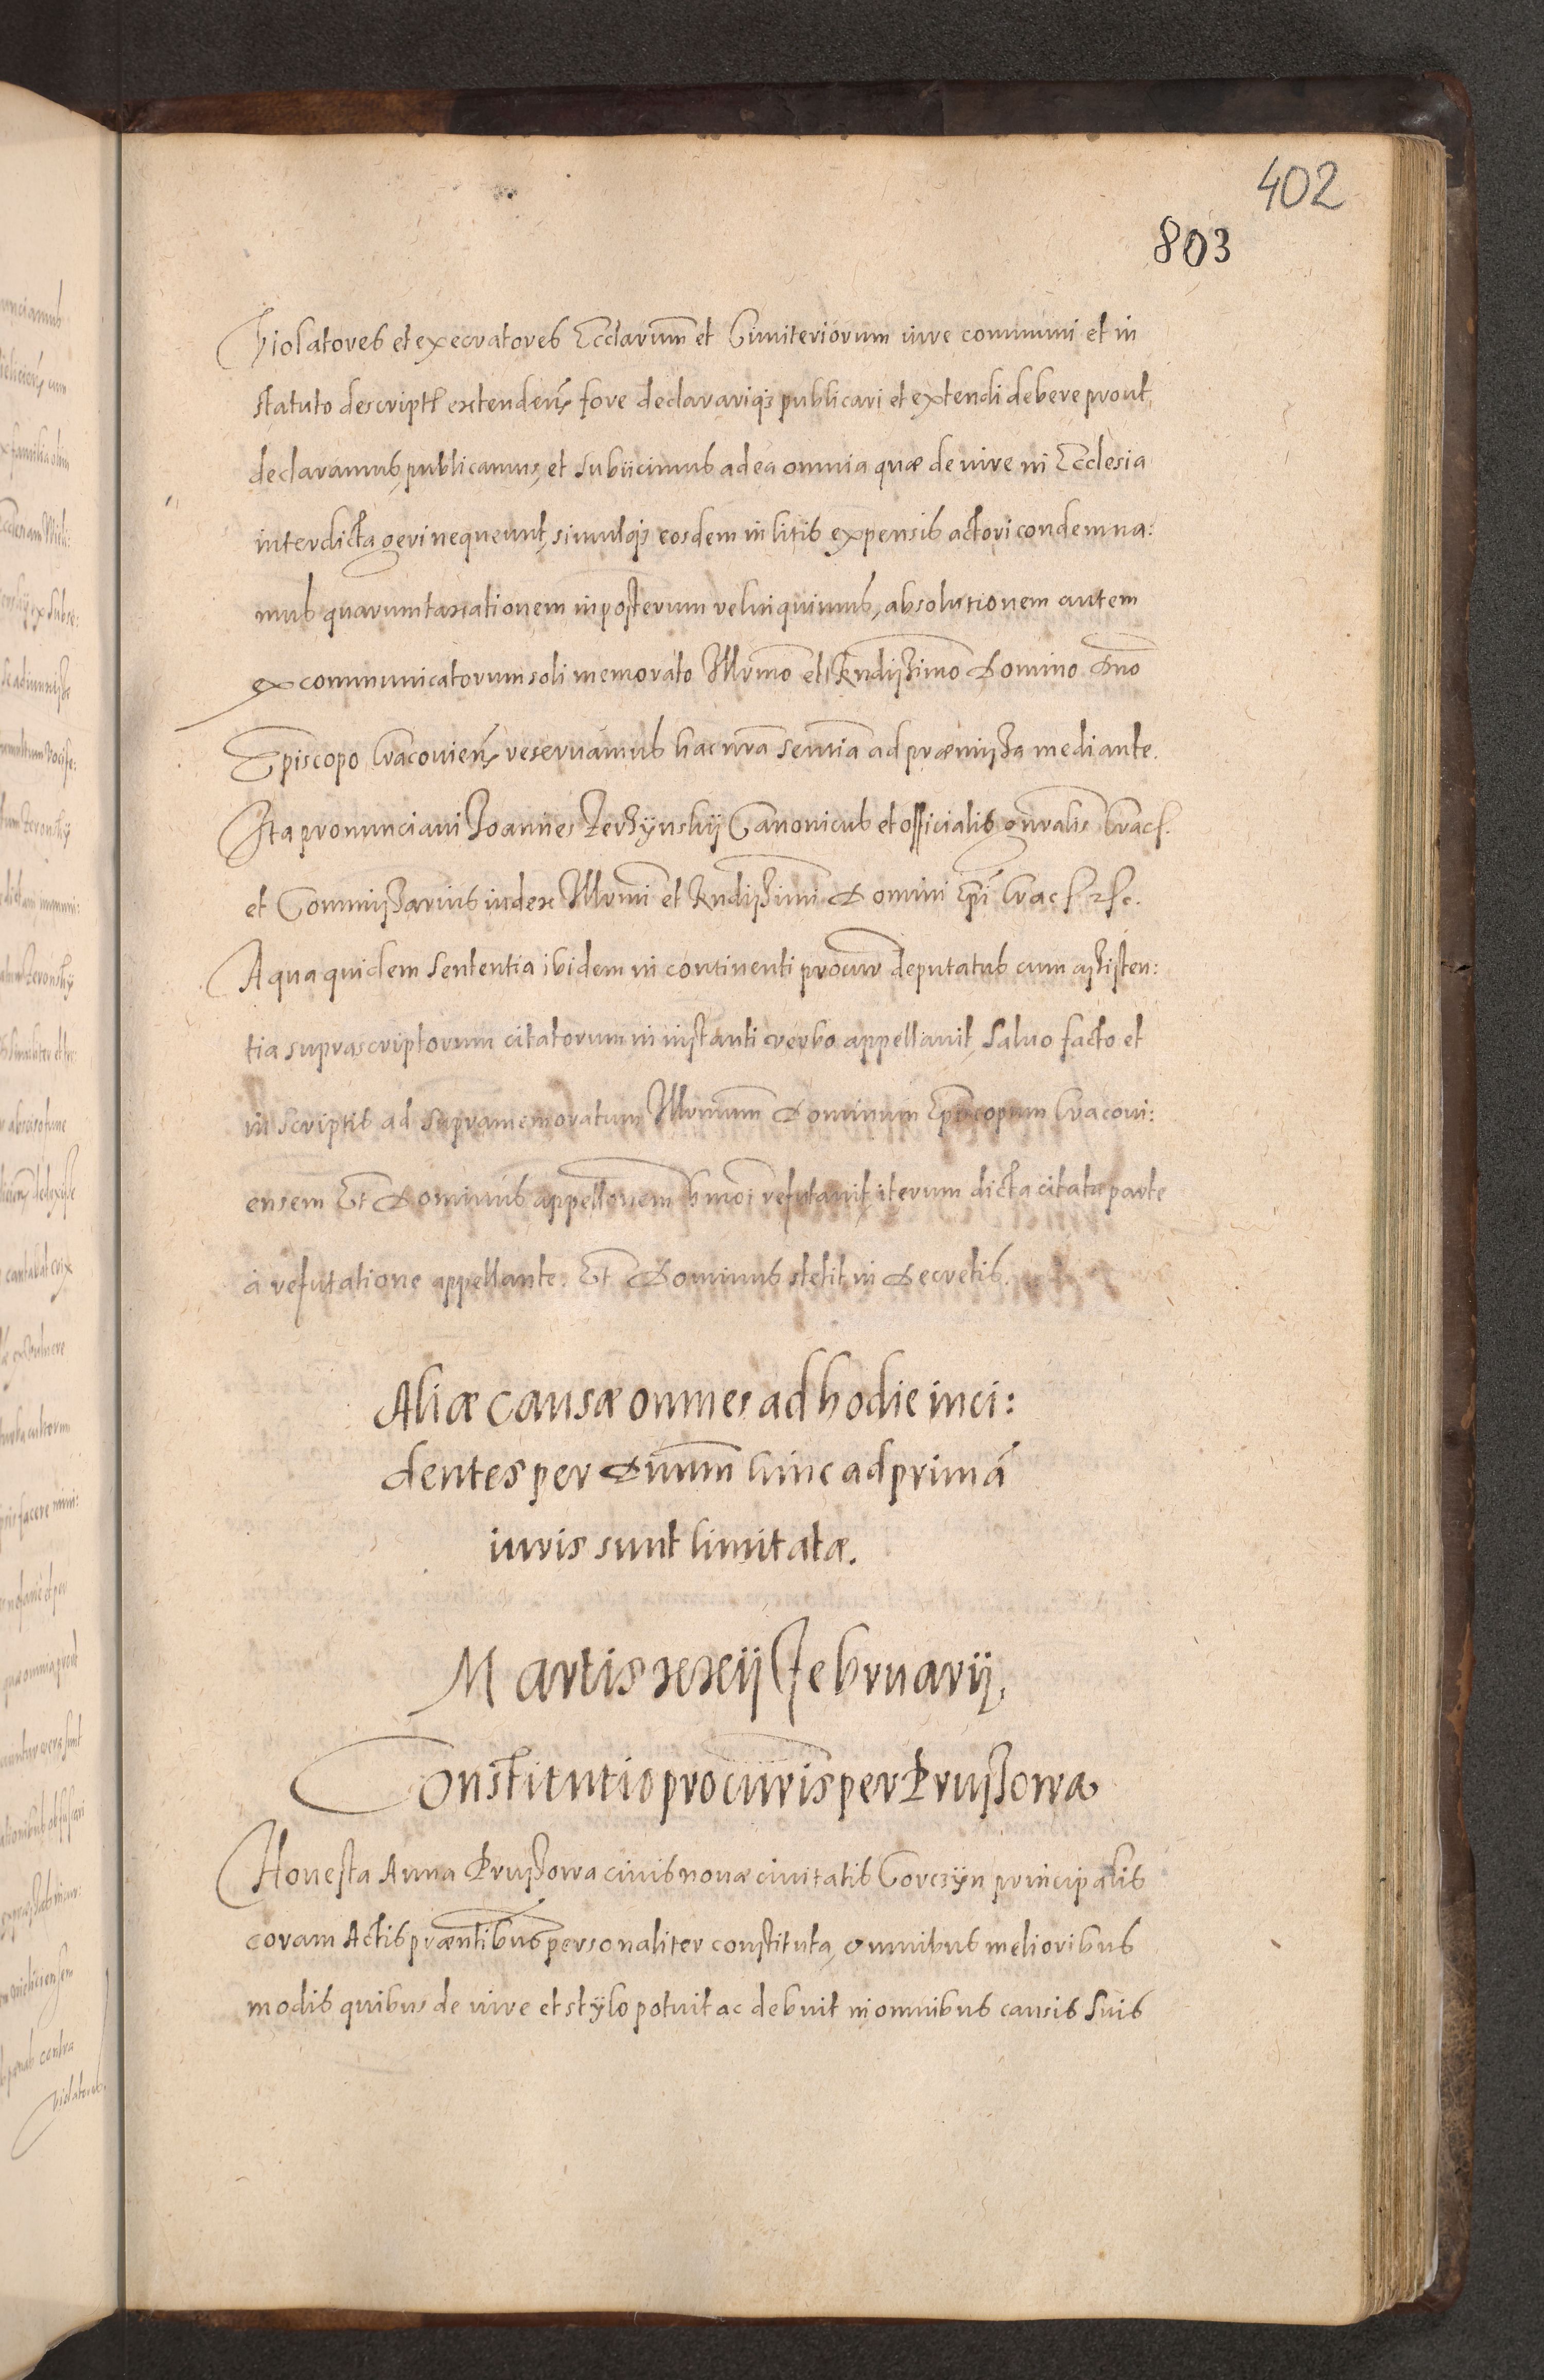 402
803
Violatores et execratores Eccłarum et Cimiteriorum iure communi et in
statuto descript extenden fore declarariqꝫ publicari et extendi debere prout
declaramus, publicamus, et subiicimus ad ea omnia quæ de iure in Ecclesia
interdicta geri nequeunt, simulqꝫ eosdem in litis expensis actori condemna:
mus quarum taxationem inposterum relinquimus, absolutionem autem
excommunicatorum soli memorato Illrmo et Rndißimo Domino Dno
Episcopo Cracovien reservamus hac nra sentia ad præmißa mediante.
Ita pronunciavi Joannes Kerzÿnskij Canonicus et officialis gnralis Crac.
et Commißarius iudex Illrmi et Rndißimi Domini Epi Crac etc.
A qua quidem sententia ibidem in continenti procur deputatus cum aßisten:
tia suprascriptorum citatorum in instanti verbo appellavit, salvo facto et
in scriptis ad supramemoratum Illrmum Dominum Episcopum Cracovi:
ensem Et Dominus appellonem hmoi refutavit, iterum dicta citata parte
à refutatione appellante. Et Dominus stetit in Decretis.
Aliæ causæ omnes ad hodie inci:
dentes per Dnum hinc ad primā
iuris sunt limitatæ.
Martis xxij Februarij.
Constitutio procuris per Prußowa
Honesta Anna Prußowa civis novæ civitatis Corczÿn principalis
coram Actis præntibus personaliter constituta, omnibus melioribus
modis quibus de iure et stÿlo potuit ac debuit in omnibus causis suis